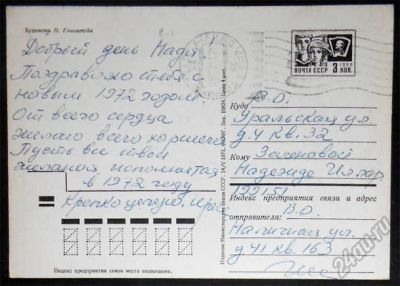 Художник П. Голлштейн
Добрый день Надя.
Поздравляю тебя с
новым 1972 годом.
От всего сердца
желаю всего хорошего
Пусть все твои
желания исполнятся
в 1972 году
Крепко целую,
ПОЧТА СССР 3 КОП
Куда В.О.
Уральская ул.
д. 4 кв. 32
Кому
Надежде
199151
Индекс предприятия связи и адрес
отправителя: В.О.
Наличная ул.
д 41 кв. 163
Индекс предприятия связи места назначения.
24au.ru